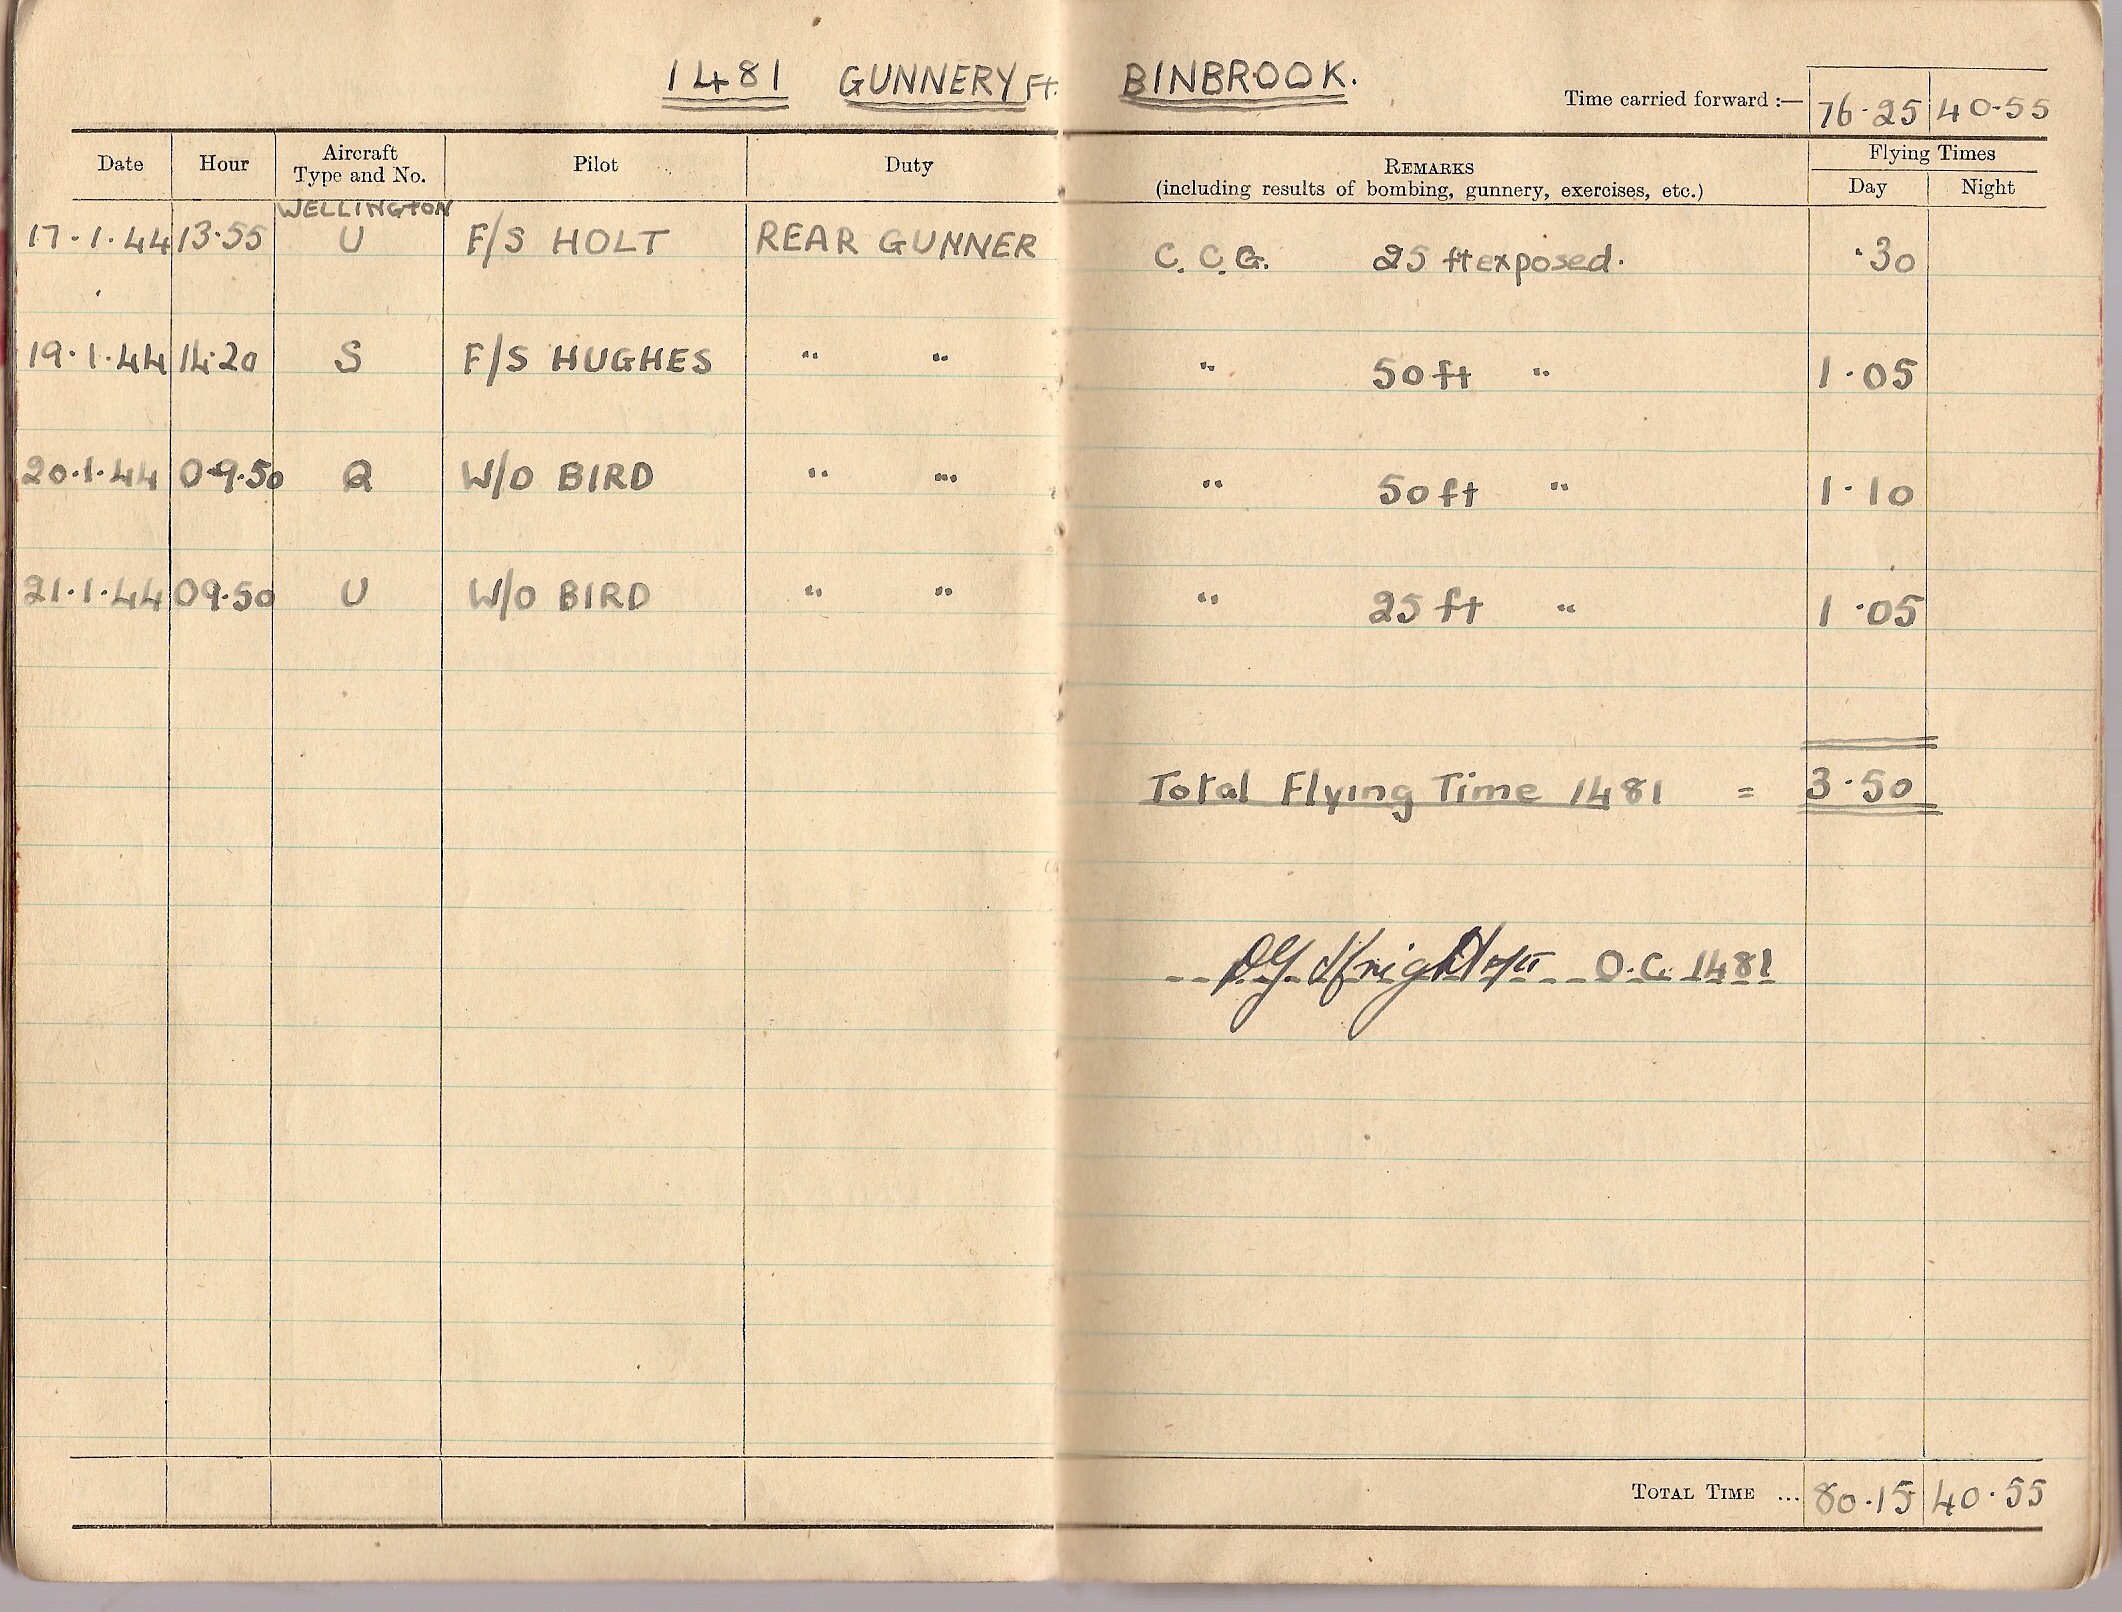 1481 GUNNERY Ft. BINBROOK.
Time carried forward :— 76·25 40·55
Date Hour Aircraft Type and No. Pilot Duty REMARKS (including results of bombing, gunnery, exercises, etc.) Flying Times Day Night
WELLINGTON
17·1·44 13·55 U F/S HOLT REAR GUNNER C.C.G. 25 ft exposed. ·30
19·1·44 14·20 S F/S HUGHES " " " 50 ft " 1·05
20·1·44 09·50 Q W/O BIRD " " " 50 ft " 1·10
21·1·44 09·50 U W/O BIRD " " " 25 ft " 1·05
Total Flying Time 1481 = 3·50
DG Knight O.C. 1481
TOTAL TIME ... 80·15 40·55